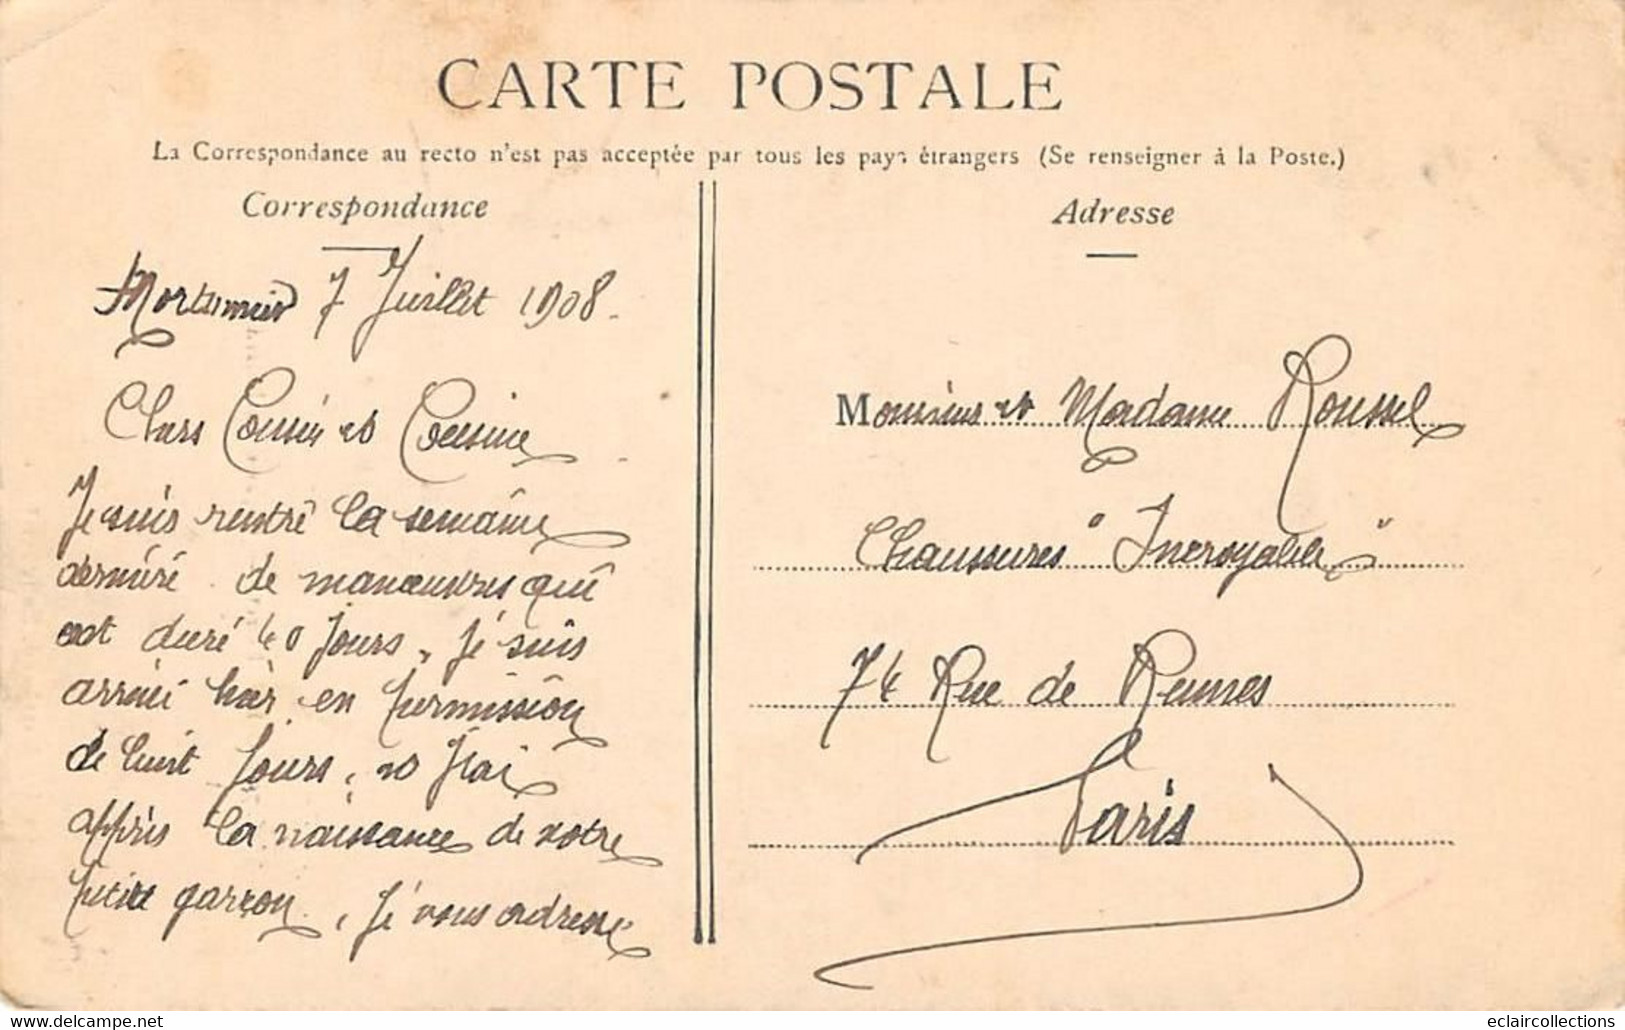 CARTE POSTALE
La Correspondance au recto n'est pas acceptée par tous les pays étrangers (Se renseigner à la Poste.)
Correspondance
7 Juillet 1908.
Chers Cousin et Cousine
Je suis rentré la semaine
derniére de manœuvres qui
ont duré 40 jours, Je suis
arrivé hier en permission
de huit Jours, et J'ai
appris la naissance de votre
petit garçon, Je vous adresse
Adresse
Monsieur et Madame Roussel
Chaussures "Incroyable"
74 Rue de Rennes
Paris
eclaircollections
www.delcampe.net